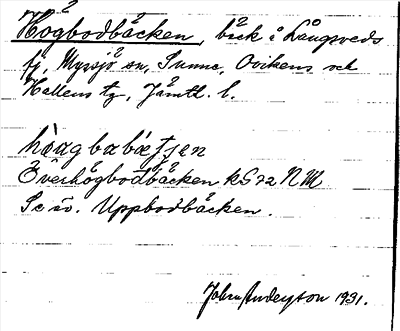 Högbodbäcken, bäck i Långsveds
fj, Myssjö sn, Sunne, Ovikens och
Hallens tg, Jämtl. l.
hö̀agbabæ̀tjen
Överhögbodbäcken kS 72 NM
Se äv. Uppbodbäcken.
John Anderson 1931.